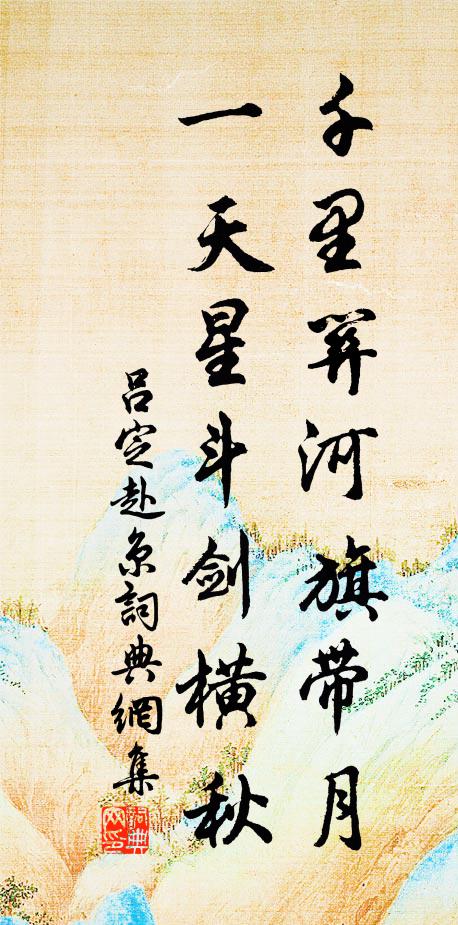 千里関河旗带月
一天星斗剑横秋
吕定赴京詞典網集
詞典
网印